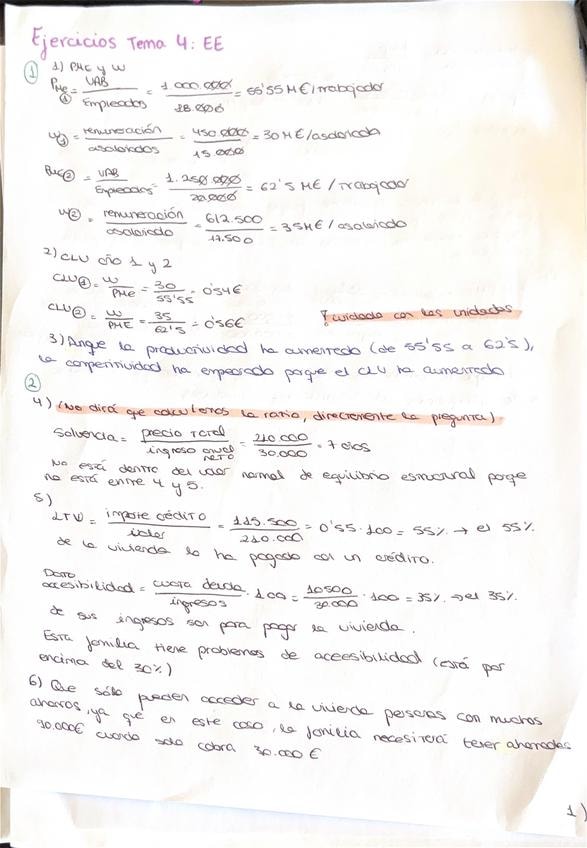 Ejercicios Tema 4: EE
① 1) PMe y W
PMe① = VAB / Empleados = 1 000.000 / 18.000 = 55'55 M€/Trabajador
W① = remuneración / asalariados = 450 000 / 15 000 = 30 M€/asalariado
PMe② = VAB / Empleados = 1.250 000 / 20.000 = 62'5 M€ / Trabajador
W② = remuneración / asalariado = 612.500 / 17.500 = 35 M€ / asalariado
2) CLU año 1 y 2
CLU① = W / PMe = 30 / 55'55 = 0'54€
CLU② = W / PME = 35 / 62'5 = 0'56€
! cuidado con las unidades
3) Aunque la productividad ha aumentado (de 55'55 a 62'5),
la competitividad ha empeorado porque el CLU ha aumentado
②
4) (No dirá que calculemos la ratio, directamente la pregunta)
Solvencia = precio total / ingreso anual neto = 210 000 / 30.000 = 7 años
No está dentro del valor normal de equilibrio estructural porque
no está entre 4 y 5.
5)
LTV = importe crédito / valor = 115.500 / 210.000 = 0'55 · 100 = 55% → el 55%
de la vivienda lo ha pagado con un crédito.
Ratio
accesibilidad = cuota deuda / ingresos · 100 = 10500 / 30.000 · 100 = 35% → el 35%
de sus ingresos son para pagar la vivienda.
Esta familia tiene problemas de accesibilidad (está por
encima del 30%)
6) Que sólo pueden acceder a la vivienda personas con muchos
ahorros, ya que en este caso, la familia necesitará tener ahorrados
90.000€ cuando solo cobra 30.000 €
1)